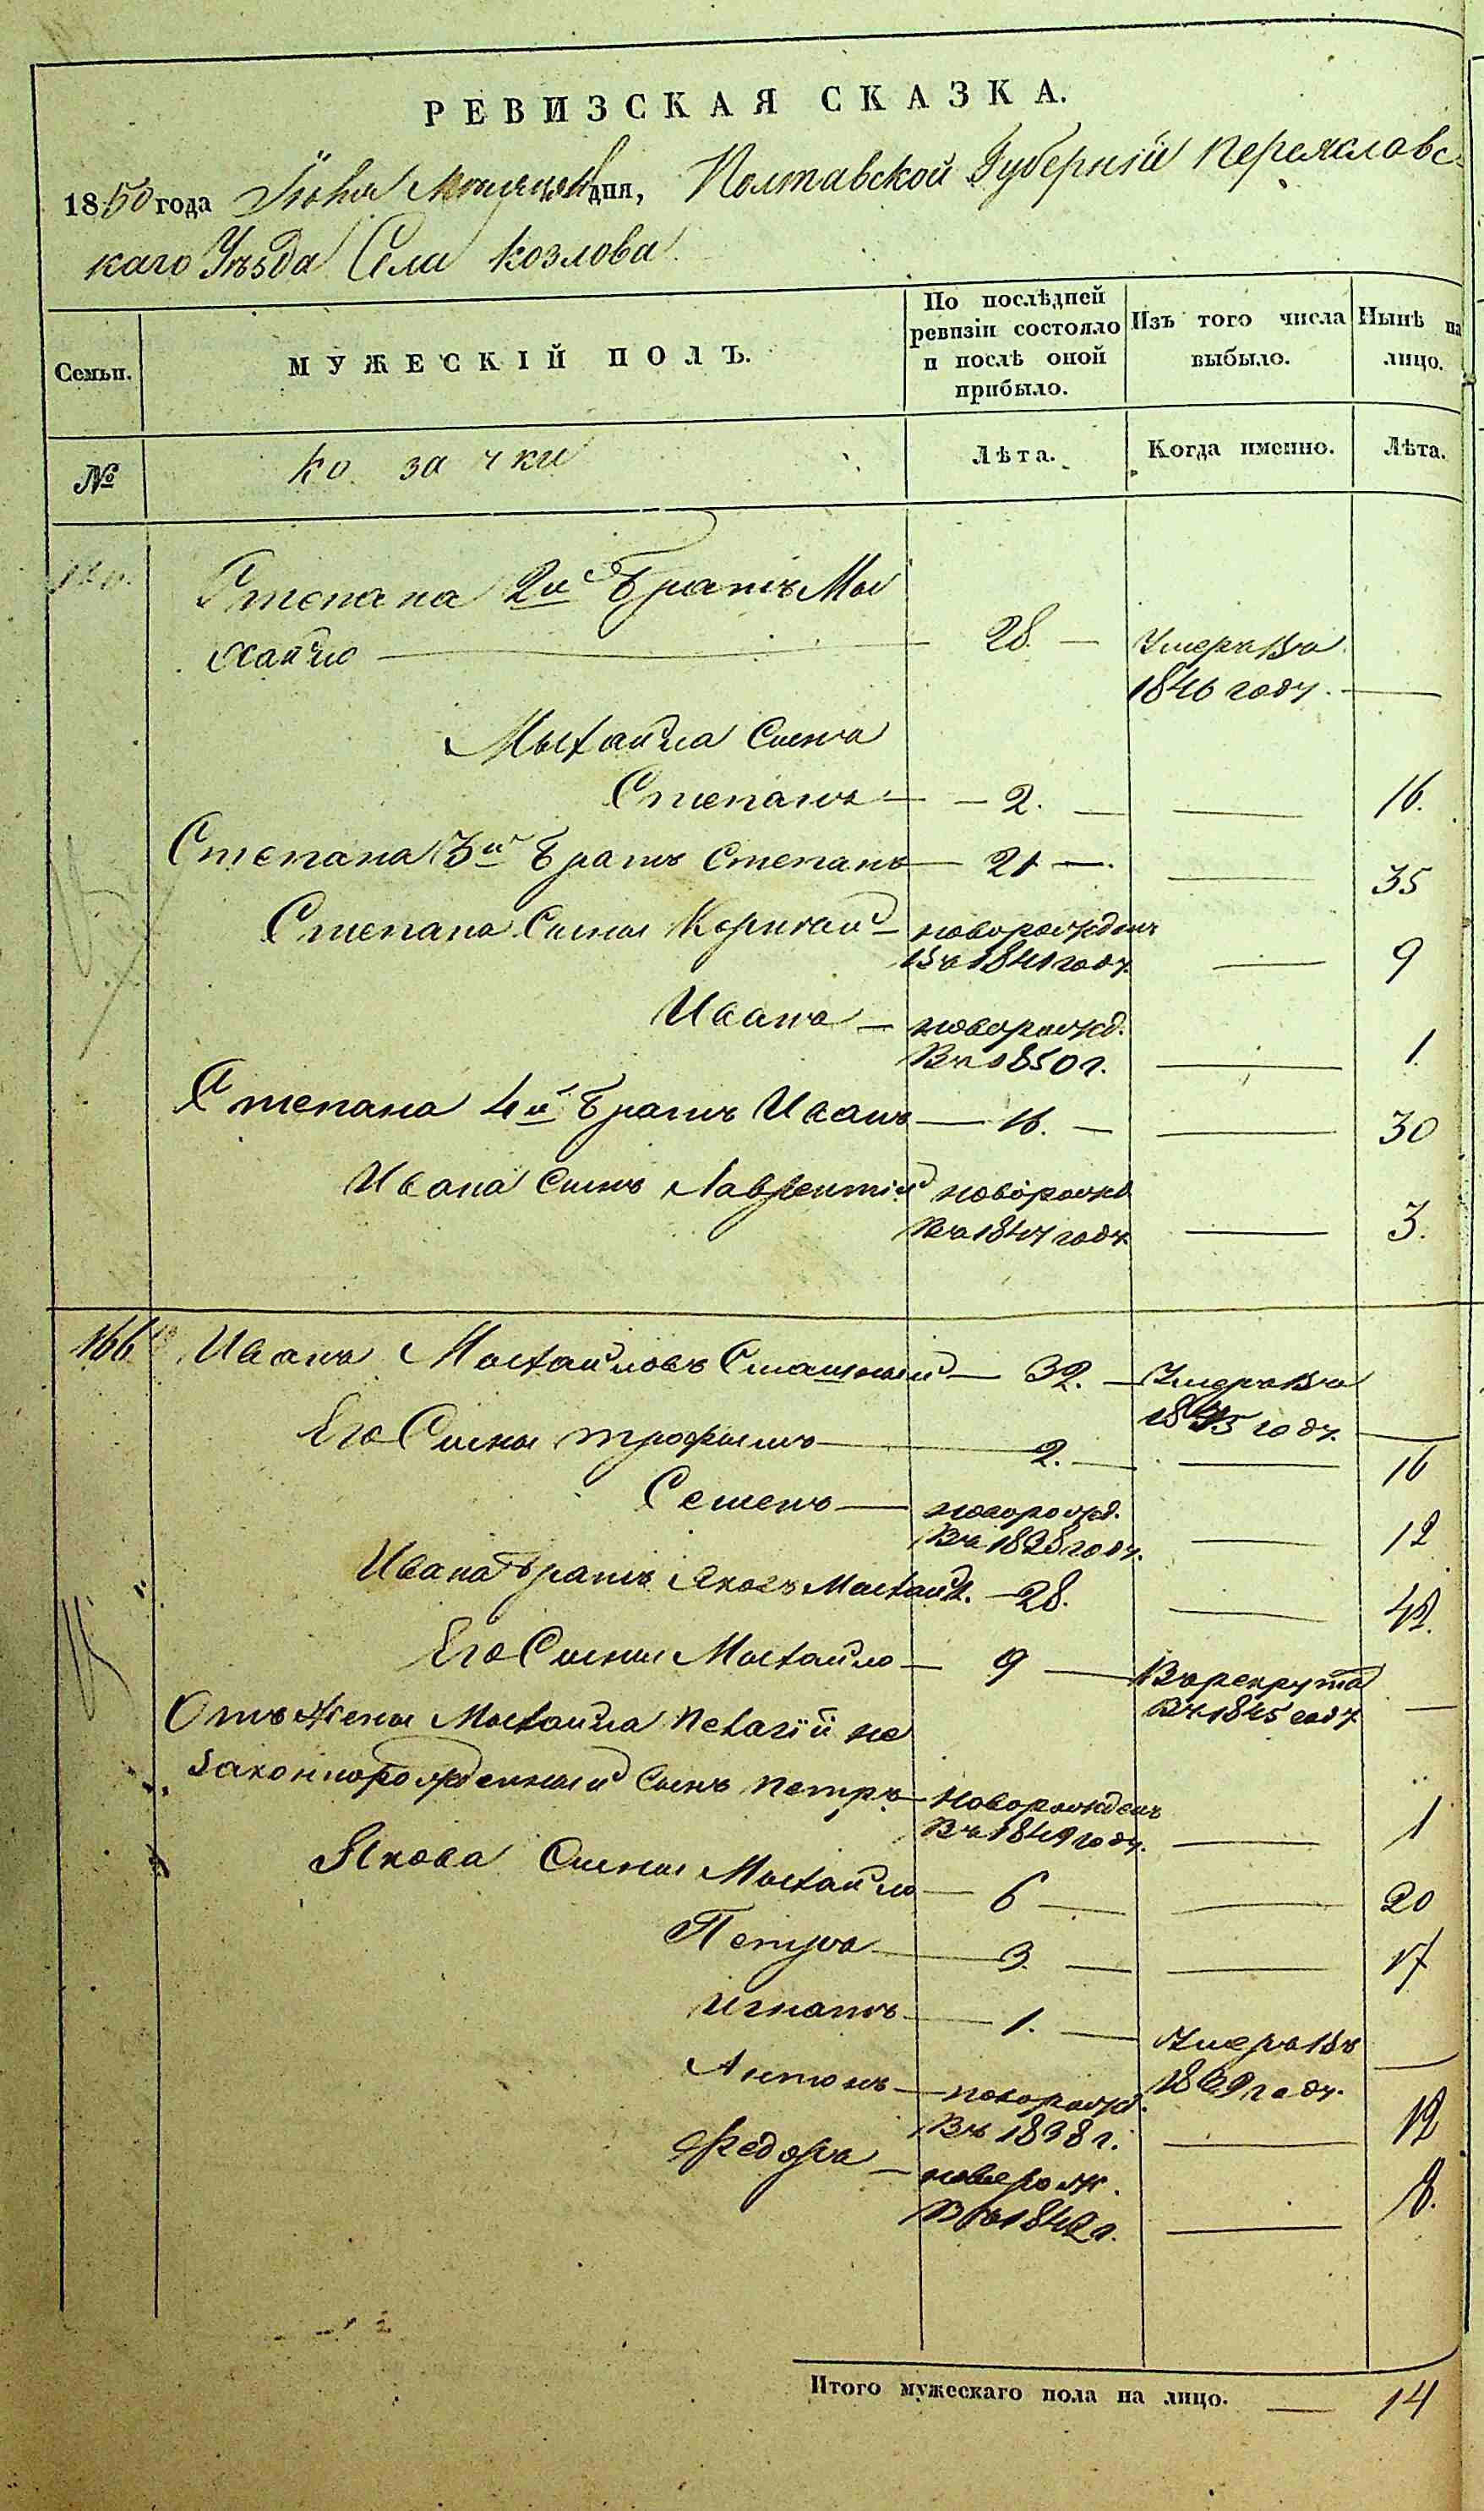 РЕВИЗСКАЯ СКАЗКА.
1850 года Июня дня, Полтавской Губерніи Переяславс-
каго Уѣзда Села Козлова
Семьи. МУЖЕСКІЙ ПОЛЪ. По послѣдней ревизіи состояло и послѣ оной прибыло. Изъ того числа выбыло. Нынѣ на лицо.
№ ко за чки Лѣта. Когда именно. Лѣта.
Степана 2й Братъ Мы
хайло — 28. — Умеръ въ
1846 году. —
Мыхайла Сынъ
Степанъ — 2. — — 16.
Степана 3й Братъ Степанъ — 21 — — 35
Степана Сыны — новорожденъ
въ 1841 году. — 9
Иванъ — новорожд.
въ 1850 г. — 1.
Степана 4й Братъ Иванъ — 16. — — 30
Ивана Сынъ Лаврентій новорожд
въ 1847 году. — 3.
166 Иванъ Мыхайловъ — 32. — Умеръ въ
1845 году. —
Его Сыны Трофымъ — 2. — — 16
Семенъ — новорожд.
въ 1838 году. — 12
Ивана Братъ Яковъ Мыхайл. — 28. — 42.
Его Сыны Мыхайло — 9 — Въ рекрута
въ 1845 году —
Отъ Жены Мыхайла Пелагіи не
законнорожденный Сынъ Петръ — новорожденъ
въ 1849 году. — 1
Якова Сыны Мыхайло — 6 — — 20
Петро — 3. — — 17
Игнатъ — 1. — Умеръ въ
1839 году. —
Антонъ — новорожд.
въ 1838 г. — 12
Федоръ — новорож.
въ 1842 г. — 8.
Итого мужескаго пола на лицо. — 14